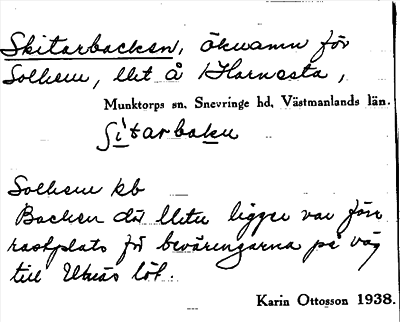 Skitarbacken, öknamn för
Solhem, llht å Harnesta,
Munktorps sn. Snevringe hd. Västmanlands län.
ʃi̱'tarbakɐn
Solhem kb
Backen där llhtn ligger var förr
rastplats för beväringarna på väg
till Utnäs löt.
Karin Ottosson 1938.